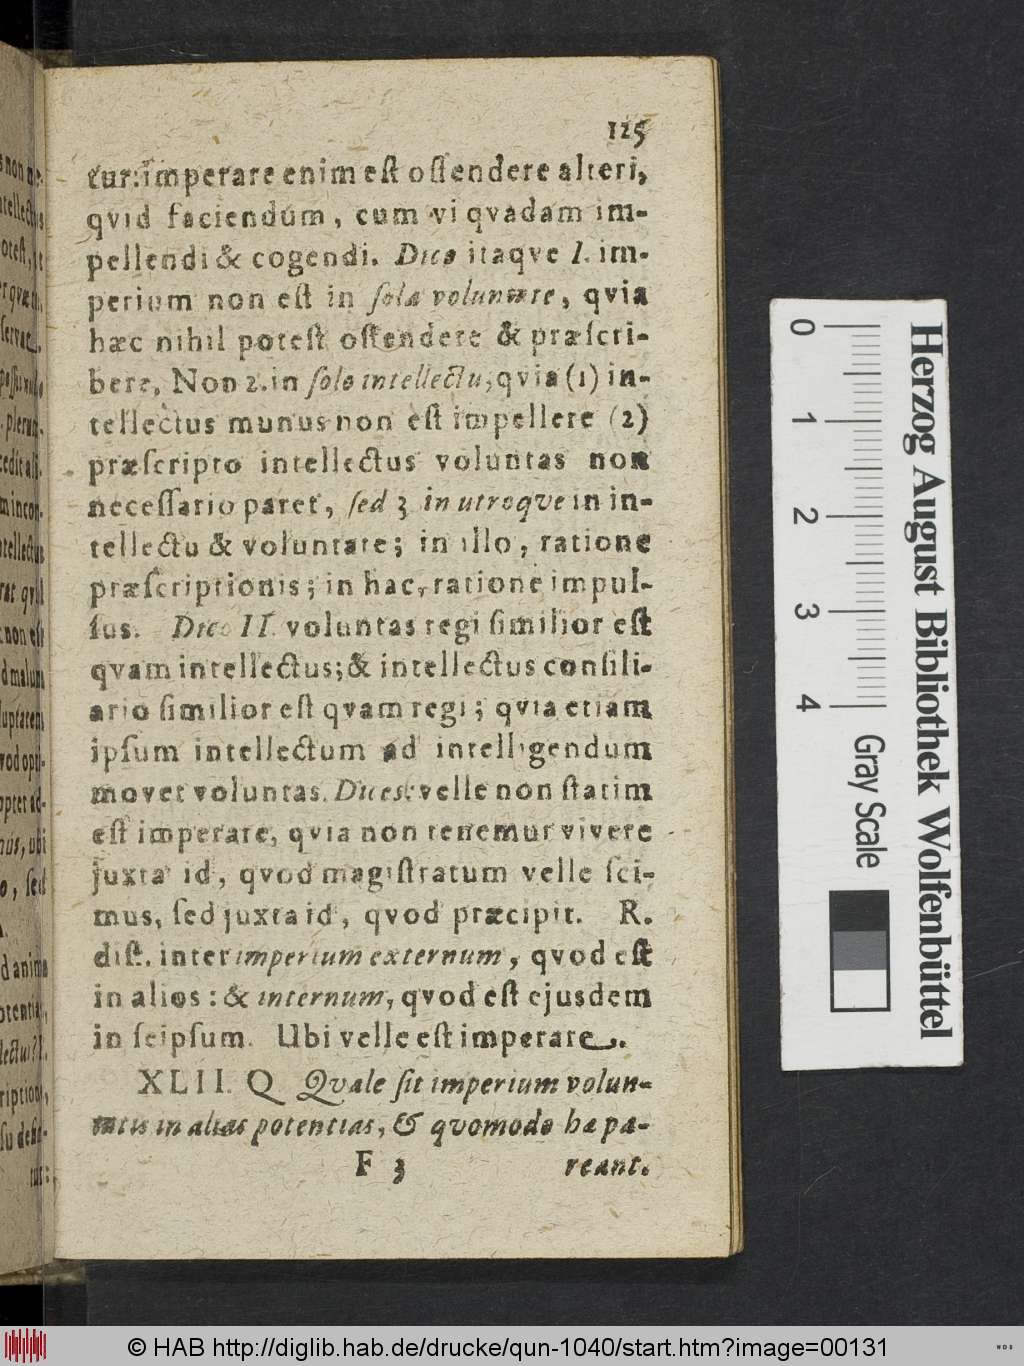 125
tur: imperare enim est ostendere alteri,
qvid faciendum, cum vi qvadam im-
pellendi & cogendi. Dico itaqve I. im-
perium non est in sola voluntate, qvia
hæc nihil potest ostendere & præscri-
bere, Non 2. in solo intellectu, qvia (1) in-
tellectus munus non est impellere (2)
præscripto intellectus voluntas non
necessario paret, sed 3 in utroqve in in-
tellectu & voluntate; in illo, ratione
præscriptionis; in hac, ratione impul-
sus. Dico II. voluntas regi similior est
qvam intellectus; & intellectus consili-
ario similior est qvam regi; qvia etiam
ipsum intellectum ad intelligendum
movet voluntas. Dices: velle non statim
est imperare, qvia non tenemur vivere
juxta id, qvod magistratum velle sci-
mus, sed juxta id, qvod præcipit. R.
dist. inter imperium externum, qvod est
in alios: & internum, qvod est ejusdem
in seipsum. Ubi velle est imperare.
XLII. Q Qvale sit imperium volun-
tatis in alias potentias, & qvomodo hæ pa-
F 3 reant.
0 1 2 3 4
Gray Scale
Herzog August Bibliothek Wolfenbüttel
© HAB http://diglib.hab.de/drucke/qun-1040/start.htm?image=00131